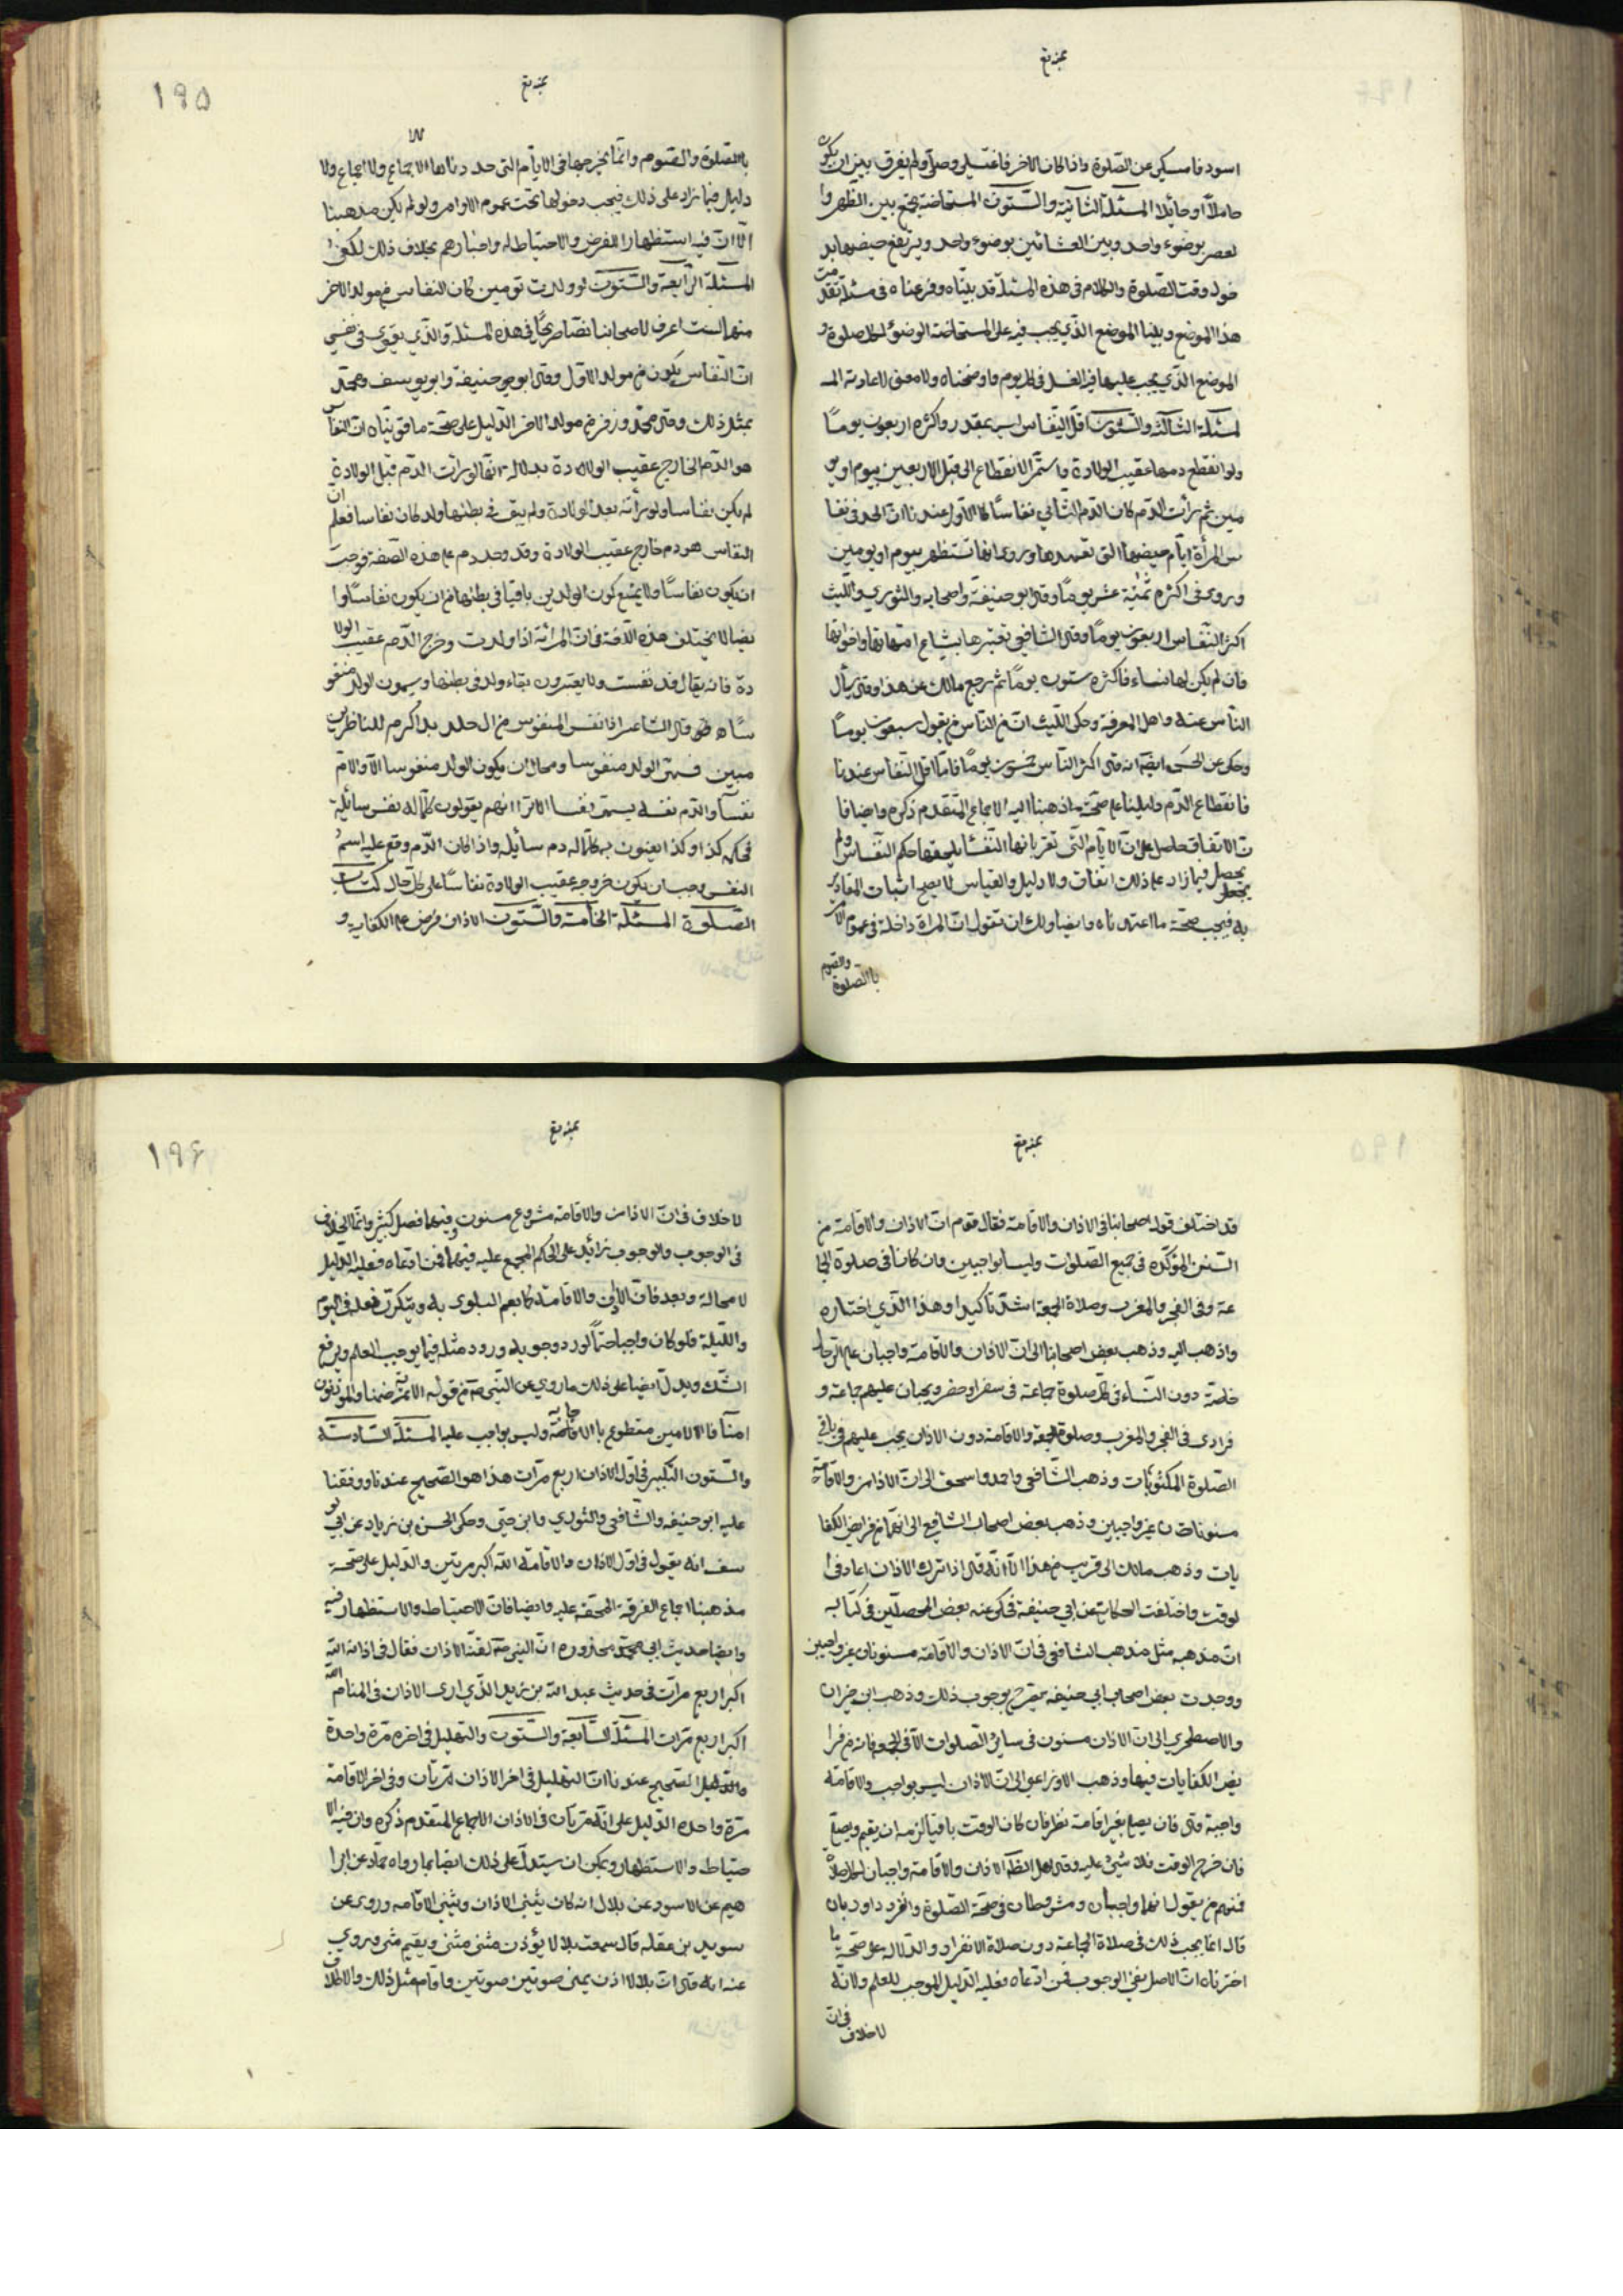 اسود فامسكي عن الصلوة واذا كان الاخر فاغتسلي وصلي ولم يفرق بين ان يكون
حاملا او حائلا المسئلة الثانية والستون المستحاضة تجمع بين الظهر وا
لعصر بوضوء واحد وبين العشائين بوضوء واحد ويرتفع حيضها بد
خول وقت الصلوة والكلام في هذه المسئلة قد بيناه وفرغناه في مسئلة تقدمت
هذا الموضع وبينا الموضع الذي يجب فيه على المستحاضة الوضوء لكل صلوة و
الموضع الذي يجب عليها فيه الغسل في كل يوم واوضحناه ولا معنى لاعادته المـ
سئلة الثالثة والستون اقل النفاس ليس بمقدر واكثره اربعون يوما
ولو انقطع دمها عقيب الولادة واستمر الانقطاع الى قبل الاربعين بيوم او يو
مين ثم رأت الدم كان الدم الثاني نفاسا كالاول عندنا ان الحد في نفا
س المرأة ايام حيضها التي تعهدها وروي انها تستظهر بيوم او يومين
وروى في اكثره ثمنية عشر يوما وقال ابو حنيفة واصحابه والثوري والليث
اكثر النفاس اربعون يوما وقال الشافعي تعتبرها بنساء امهاتها واخواتها
فان لم يكن لها نساء فاكثره ستون يوما ثم رجع مالك عن هذا وقال يسأل
الناس عنه واهل المعرفة وحكى الليث ان من الناس من يقول سبعون يوما
وحكى عن الحسن ايضا انه قال اكثر النفاس خمسون يوما فاما اقل النفاس عندنا
فانقطاع الدم دليلنا على صحة ما ذهبنا اليه الاجماع المتقدم ذكره وايضا فا
ن الاتفاق حاصل على ان الايام التي تقر بانها النفساء يلحقها حكم النفاس ولم
يحصل فيما زاد على ذلك اتفاق ولا دليل والقياس لا يصح اثبات المقادير
به فيجب صحة ما اعتمدناه وايضا ولك ان تقول ان المراة داخلة في عموم الامر
بالصلوة والصوم
١٩٥
بالصلوة والصوم وانما يخرجها في الايام التي حددناها الاجماع ولا اجماع ولا
دليل فيما زاد على ذلك فيجب دخولها تحت عموم الاوامر ولو لم يكن مذهبنا
الا ان فيه استظهارا للفرض والاحتياط له واخبارهم بخلاف ذلك لكفى
المسئلة الرابعة والستون لو ولدت تومين كان النفاس من مولد الاخر
منهما لست اعرف لاصحابنا نصا صريحا في هذه المسئلة والذي يقوى في نفسي
ان النفاس يكون من مولد الاول وقال ابو حنيفة وابو يوسف ومحمد
بمثل ذلك وقال محمد وزفر من مولد الاخر الدليل على صحة ما قويناه ان النفاس
هو الدم الخارج عقيب الولادة بدلالة انها لو رأت الدم قبل الولادة
لم يكن نفاسا ولو رأته بعد الولادة ولم يبق في بطنها ولد كان نفاسا فعلم ان
النفاس هو دم خارج عقيب الولادة وقد وجد دم على هذه الصفة فوجب
ان يكون نفاسا ولا يمنع كون الولدين باقيا في بطنها من ان يكون نفاسا وا
يضا لا يختلف هذه اللغة في ان المرائة اذا ولدت وخرج الدم عقيب الولا
دة فانه يقال قد نفست ولا يعتبرون بقاء ولد في بطنها ويسمون الولد منفو
سا قال الشاعر اذا نفس المنفوس من ال خلد بدا كرم للناظرين
مبين فسمى الولد منفوسا ومحال ان يكون الولد منفوسا الا والام
نفسا والدم نفسه يسمى نفسا الا ترا انهم يقولون كلما له نفس سائلة
فحكمه كذا وكذا يعنون به كلما له دم سائلة واذا كان الدم وقع عليه اسم
النفس وجب ان يكون خروجه عقيب الولادة نفاسا على كل حال كتاب
الصلوة المسئلة الخامسة والستون الاذان فرض على الكفاية و
قد اختلف قول اصحابنا في الاذان والاقامة فقال قوم ان الاذان والاقامة من
السنن المؤكدة في جميع الصلوات وليسا بواجبين وان كانا في صلوة الجما
عة وفي الفجر والمغرب وصلاة الجمعة اشد تاكيدا وهذا الذي اختاره
واذهب اليه وذهب بعض اصحابنا الى ان الاذان والاقامة واجبان على الرجال
خاصة دون النساء في كل صلوة جماعة في سفر او حضر ويجبان عليهم جماعة و
فرادى في الفجر والمغرب وصلوة الجمعة والاقامة دون الاذان يجب عليهم في باقي
الصلوة المكتوبات وذهب الشافعي واحمد واسحق الى ان الاذان والاقامة
مسنونان غير واجبين وذهب بعض اصحاب الشافعي الى انهما من فرايض الكفا
يات وذهب مالك الى قريب من هذا الا انه قال اذا ترك الاذان اعاد في ا
لوقت واختلفت الحكايات عن ابي حنيفة فحكى عنه بعض المحصلين في كتابه
ان مذهبه مثل مذهب الشافعي في ان الاذان والاقامة مسنونان غير واجبين
ووجدت بعض اصحاب ابي حنيفة يصرح بوجوب ذلك وذهب ابن خيران
والاصطخري الى ان الاذان مسنون في ساير الصلوات الا في الجمعة فانه من فرا
يض الكفايات فيها وذهب الاوزاعي الى ان الاذان ليس بواجب والاقامة
واجبة قال فان يصلي بغير اقامة نظر فان كان الوقت باقيا لزمه ان يقيم ويصلي
فان خرج الوقت فلا شئ عليه وقال اهل الظاهر الاذان والاقامة واجبان لكل صلاة
فمنهم من يقول انهما واجبان ومشروطان في صحة الصلوة وانفرد داود بان
قال انما يجب ذلك في صلاة الجماعة دون صلاة الانفراد والدلالة على صحة ما
اخترناه ان الاصل نفي الوجوب فمن ادعاه فعليه الدليل الموجب للعلم ولانه
لا خلاف في ان
١٩۶
لا خلاف في ان الاذان والاقامة مشروع مسنون وفيهما فضل كبير وانما الخلاف
في الوجوب والوجوب زائد على الحكم المجمع عليه فيهما فمن ادعاه فعليه الدليل
لا محالة وبعد فان الاذان والاقامة مما يعم البلوى به ويتكرر فعله في اليوم
والليلة فلو كان واجبا حتما لورد وجوبه ورود مثله فيما يوجب العلم ويرفع
الشك ويدل ايضا على ذلك ما روي عن النبي ص من قوله الائمة ضمنا والمؤذنون
امنا فالامين متطوع بالاقامة وليس بواجب عليه المسئلة السادسة
والستون التكبير في اول الاذان اربع مرات هذا هو الصحيح عندنا ووفقنا
عليه ابو حنيفة والشافعي والثوري وابن حتى وحكى الحسن بن زياد عن ابي يو
سف انه يقول في اول الاذان والاقامة الله اكبر مرتين والدليل على صحة
مذهبنا اجماع الفرقة المحقة عليه وايضا فان الاحتياط والاستظهار فيه
وايضا حديث ابي محمد محذوره ان النبي ص لقنه الاذان فقال في اذانه الله
اكبر اربع مرات في حديث عبد الله بن زيد الذي ارى الاذان في المنام الله
اكبر اربع مرات المسئلة السابعة والستون والتهليل في اخره مرة واحدة
والدليل الصحيح عندنا ان التهليل في اخر الاذان مرتان وفي اخر الاقامة
مرة واحدة الدليل على انه مرتان في الاذان الاجماع المتقدم ذكره وان فيه الا
حتياط والاستظهار ويمكن ان يستدل على ذلك ايضا بما رواه حماد عن ابرا
هيم عن الاسود عن بلال انه كان يثنى الاذان ويثنى الاقامة وروى عن
سويد بن عقله قال سمعت بلالا يؤذن مثنى مثنى ويقيم مثنى وروي
عنه انه قال ان بلالا اذن بمنى صوتين صوتين واقام مثل ذلك والاطلاق